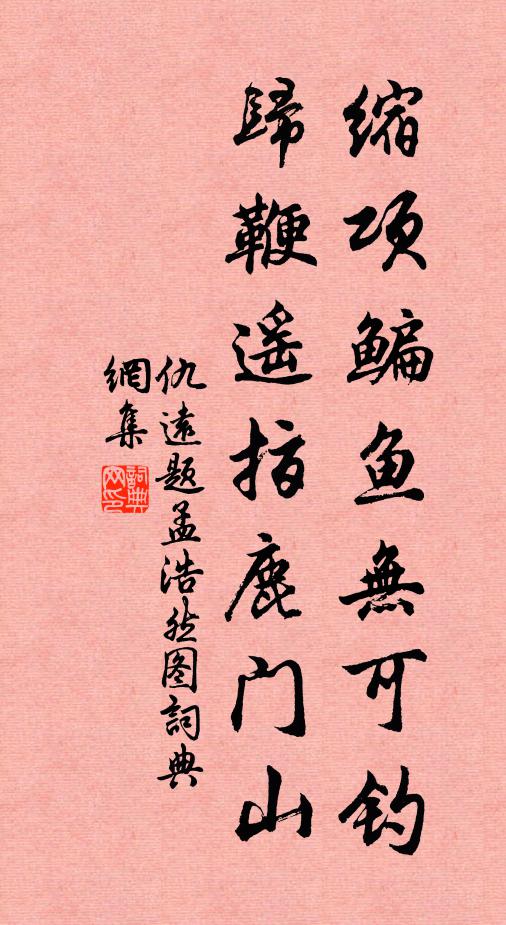 缩项鳊鱼無可钓
歸鞭遥指鹿门山
仇遠题孟浩然图詞典
網集
詞典網印